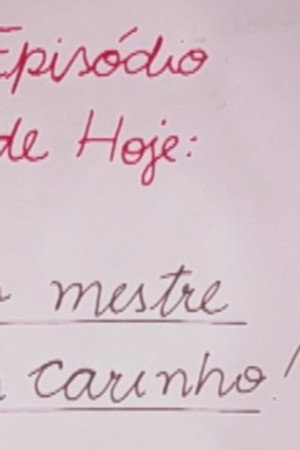 Episódio
de Hoje:
mestre
carinho!